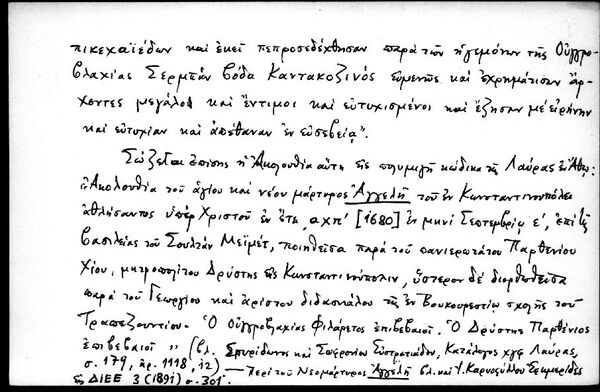 πικεχαϊέδων καὶ ἐκεῖ πεπροσεδέχθησαν παρὰ τῶν ἡγεμόνων τῆς Οὐγγρο-
βλαχίας Σερμπὰν βόδα Καντακοζινὸς εὐμενῆς καὶ ἐχρημάτισαν ἄρ-
χοντες μεγάλοι καὶ ἔντιμοι καὶ εὐτυχισμένοι καὶ ἔζησαν μὲ εἰρήνην
καὶ εὐτυχίαν καὶ ἀπέθαναν ἐν εὐσεβείᾳ".
Σώζεται ἐπίσης ἡ Ἀκολουθία αὕτη εἰς πολυμιγῆ κώδικα τῆς Λαύρας ἐν Ἄθῳ:
"Ἀκολουθία τοῦ ἁγίου καὶ νέου μάρτυρος Ἀγγελῆ τοῦ ἐν Κωνσταντινουπόλει
ἀθλήσαντος ὑπὲρ Χριστοῦ ἐν ἔτει ͵αχπ' [1680] ἐν μηνὶ Σεπτεμβρίῳ ε', ἐπὶ τῆς
βασιλείας τοῦ Σουλτὰν Μεϊμέτ, ποιηθεῖσα παρὰ τοῦ πανιερωτάτου Παρθενίου
Χίου, μητροπολίτου Δρύστης εἰς Κωνσταντινούπολιν, ὕστερον δὲ διορθωθεῖσα
παρὰ τοῦ Γεωργίου καὶ ἀρίστου διδασκάλου τῆς ἐν Βουκουρεστίῳ σχολῆς τοῦ
Τραπεζουντίου. Ὁ Οὐγγροβλαχίας Φιλάρετος ἐπιβεβαιοῖ. Ὁ Δρύστης Παρθένιος
ἐπιβεβαιοῖ" (βλ. Σπυρίδωνος καὶ Σωφρονίου Εὐστρατιάδου, Κατάλογος χφ Λαύρας,
σ. 179, ἀρ. 1118, 12) — Περὶ τοῦ Νεομάρτυρος Ἀγγελῆ βλ. καὶ Ἰ. Καρυοφύλλου Ἐφημερίδες
εἰς ΔΙΕΕ 3 (1891) σ. 301.